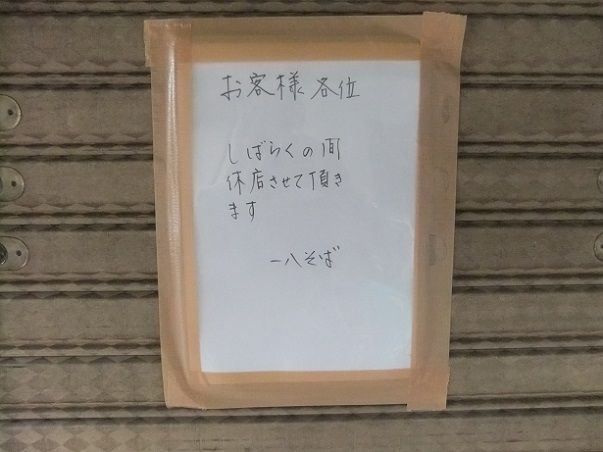 お客様各位
しばらくの間
休店させて頂き
ます
一八そば